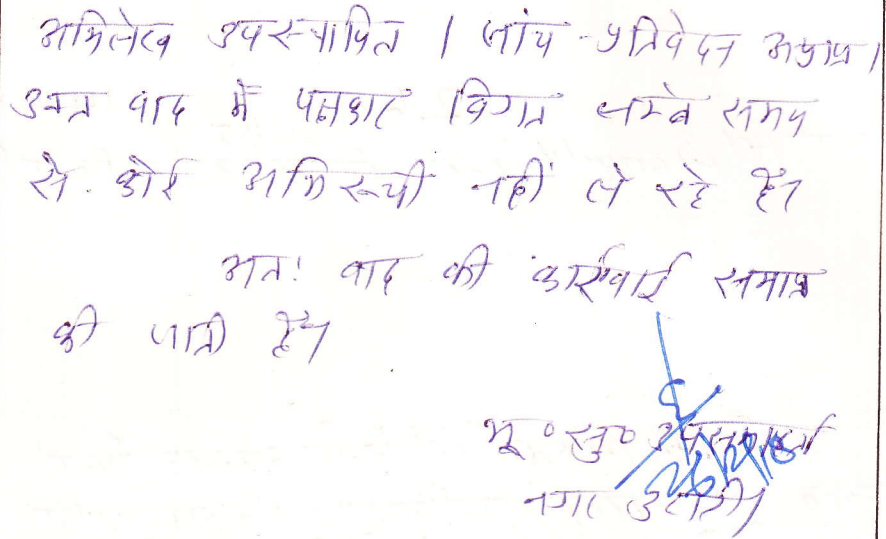 अभिलेख उपस्थापित । जांच प्रतिवेदन अप्राप्त ।
उक्त वाद में पक्षकार विगत लम्बे समय
से कोई अभिरूची नहीं ले रहे हैं।
अतः वाद की कार्रवाई समाप्त
की जाती है।
भू० सु० उपसमाहर्ता
नगर उंटारी।